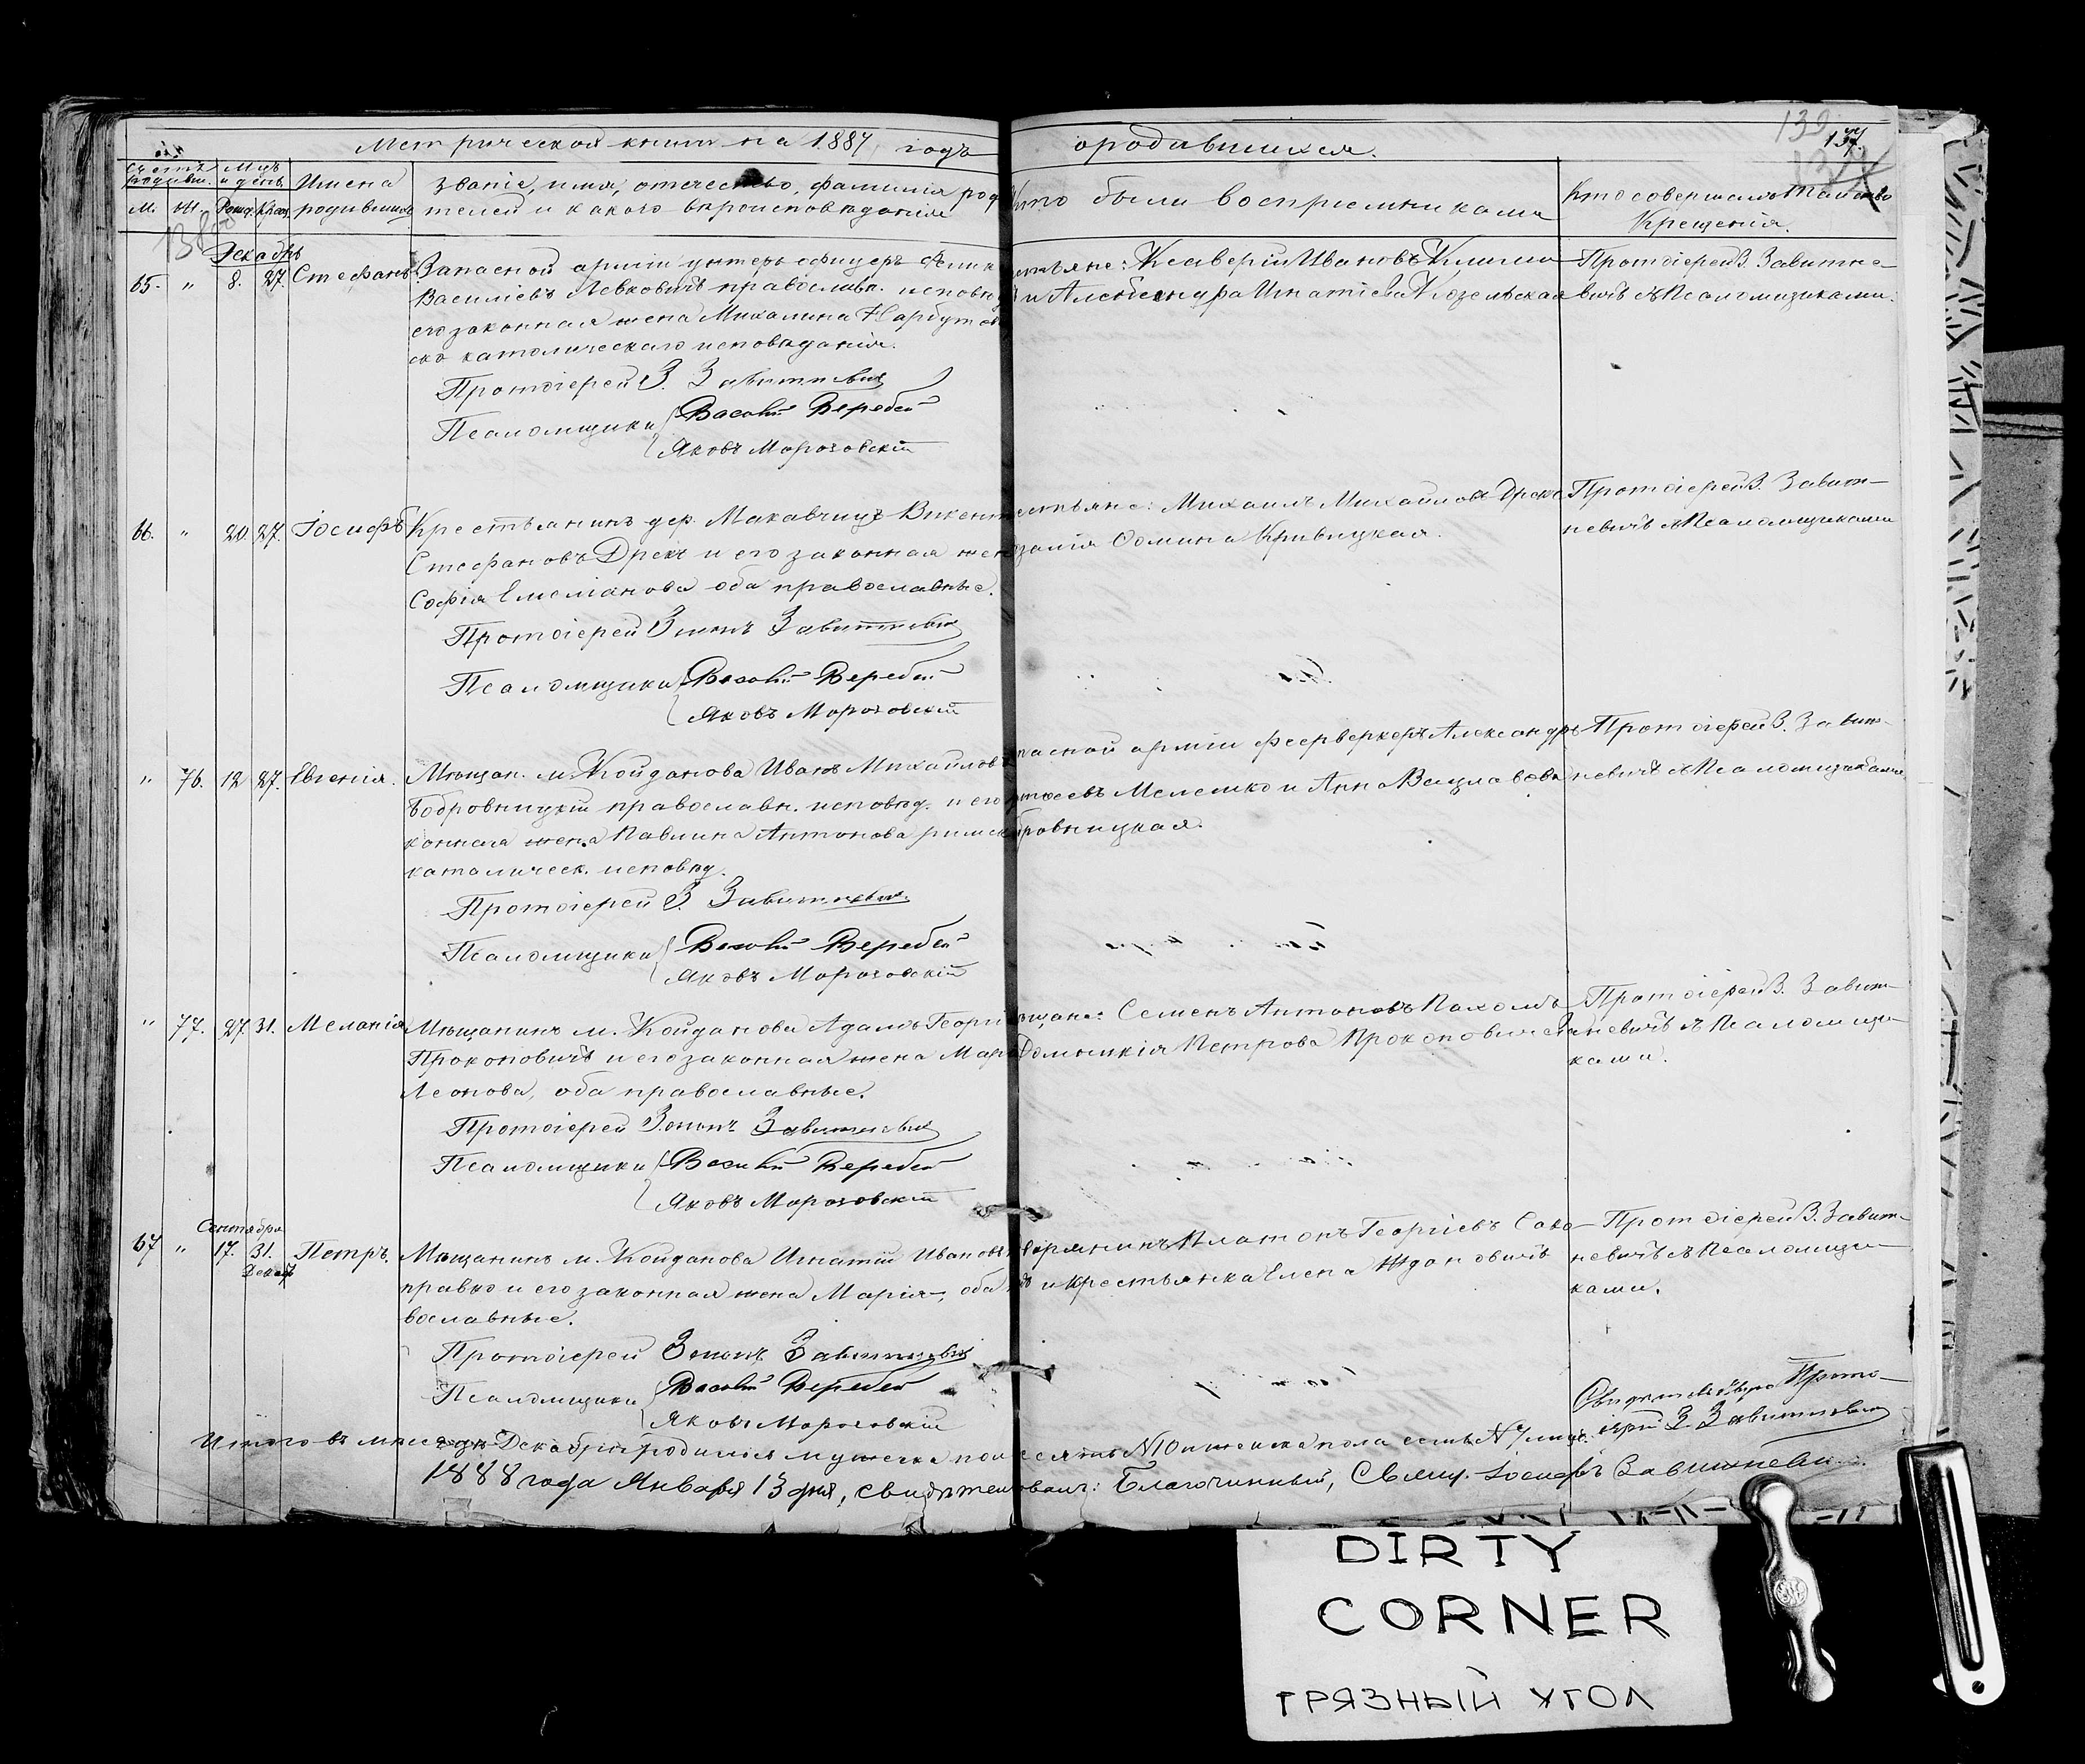 Метрической книги на 1887 годъ о родившихся.
139
137.
Счетъ родивш. Мцъ и день. Имена родившихъ Званіе, имя, отечество, фамилія род
М. Ж. Рожд. Крещ. телей и какого вѣроисповѣданія
Кто были воспріемниками
Кто совершалъ таинство
Крещенія.
Декабрь
65. " 8. 27. Стефанъ Запасной арміи унтеръ офицеръ
Василіевъ Левковичъ православн. исповѣд
его законная жена Михалина Нарбутов
ско католическаго исповѣданія.
Протоіерей З. Завитневич
Псаломщики Василій Веребей
Яковъ Морозовскій
стьяне: Ксаверій Ивановъ Клими
и Александра Игнатіева Козельская
Протоіерей З. Завитне-
вичъ съ Псаломщиками.
66. " 20. 27. Іосифъ Крестьянинъ дер. Макавчицъ Викент
Стефановъ Дрекъ и его законная жен
Софія Емеліанова оба православные.
Протоіерей Зинонъ Завитневич
Псаломщики Василій Веребей
Яковъ Морозовскій
стьяне: Михаилъ Михайловъ Дрекъ
Домина Кривицкая.
Протоіерей З. Завит-
невичъ съ Псаломщиками
" 76. 12 27. Евгенія. Мѣщан. м. Койданова Иванъ Михайлов
Бобровницкій православн. исповѣд. и его
конная жена Павлина Антонова римск
католическ. исповѣд.
Протоіерей З. Завитневич.
Псаломщики Василій Веребей
Яковъ Морозовскій
пасной арміи феерверкеръ Александръ
Мелешко и Анна Вацлавова
бровницкая.
Протоіерей З. Завит-
невичъ съ Псаломщиками
" 77. 27 31. Меланія Мѣщанинъ м. Койданова Адамъ Георгі
Прокоповичъ и его законная жена Мар
Леонова, оба православные.
Протоіерей Зинонъ Завитневич
Псаломщики Василій Веребей
Яковъ Морозовскій
щане: Семенъ Антоновъ Пахомъ
Домникія Петрова Прокоповичева
Протоіерей З. Завит-
невичъ съ Псаломщи-
ками.
Сентября
67 " 17. 31. Петръ. Мѣщанинъ м. Койданова Игнатій Ивановъ
Декаб
правко и его законная жена Марія, оба
вославные.
Протоіерей Зинонъ Завитневич
Псаломщики Василій Веребей
Яковъ Морозовскій
дворянинъ Платонъ Георгіевъ Сако-
и крестьянка Елена Ждановичъ
Протоіерей З. Завит-
невичъ съ Псаломщи-
ками.
Прото-
іерей З. Завитневич
Итого въ мѣсяцѣ Декабрѣ родилось мужеска пола десять N 10 и женска пола семь N 7 лицъ.
1888 года Января 13 дня, свидѣтельствовалъ: Благочинный, Свящ. Іосифъ Завитневич
DIRTY
CORNER
ГРЯЗНЫЙ УГОЛ